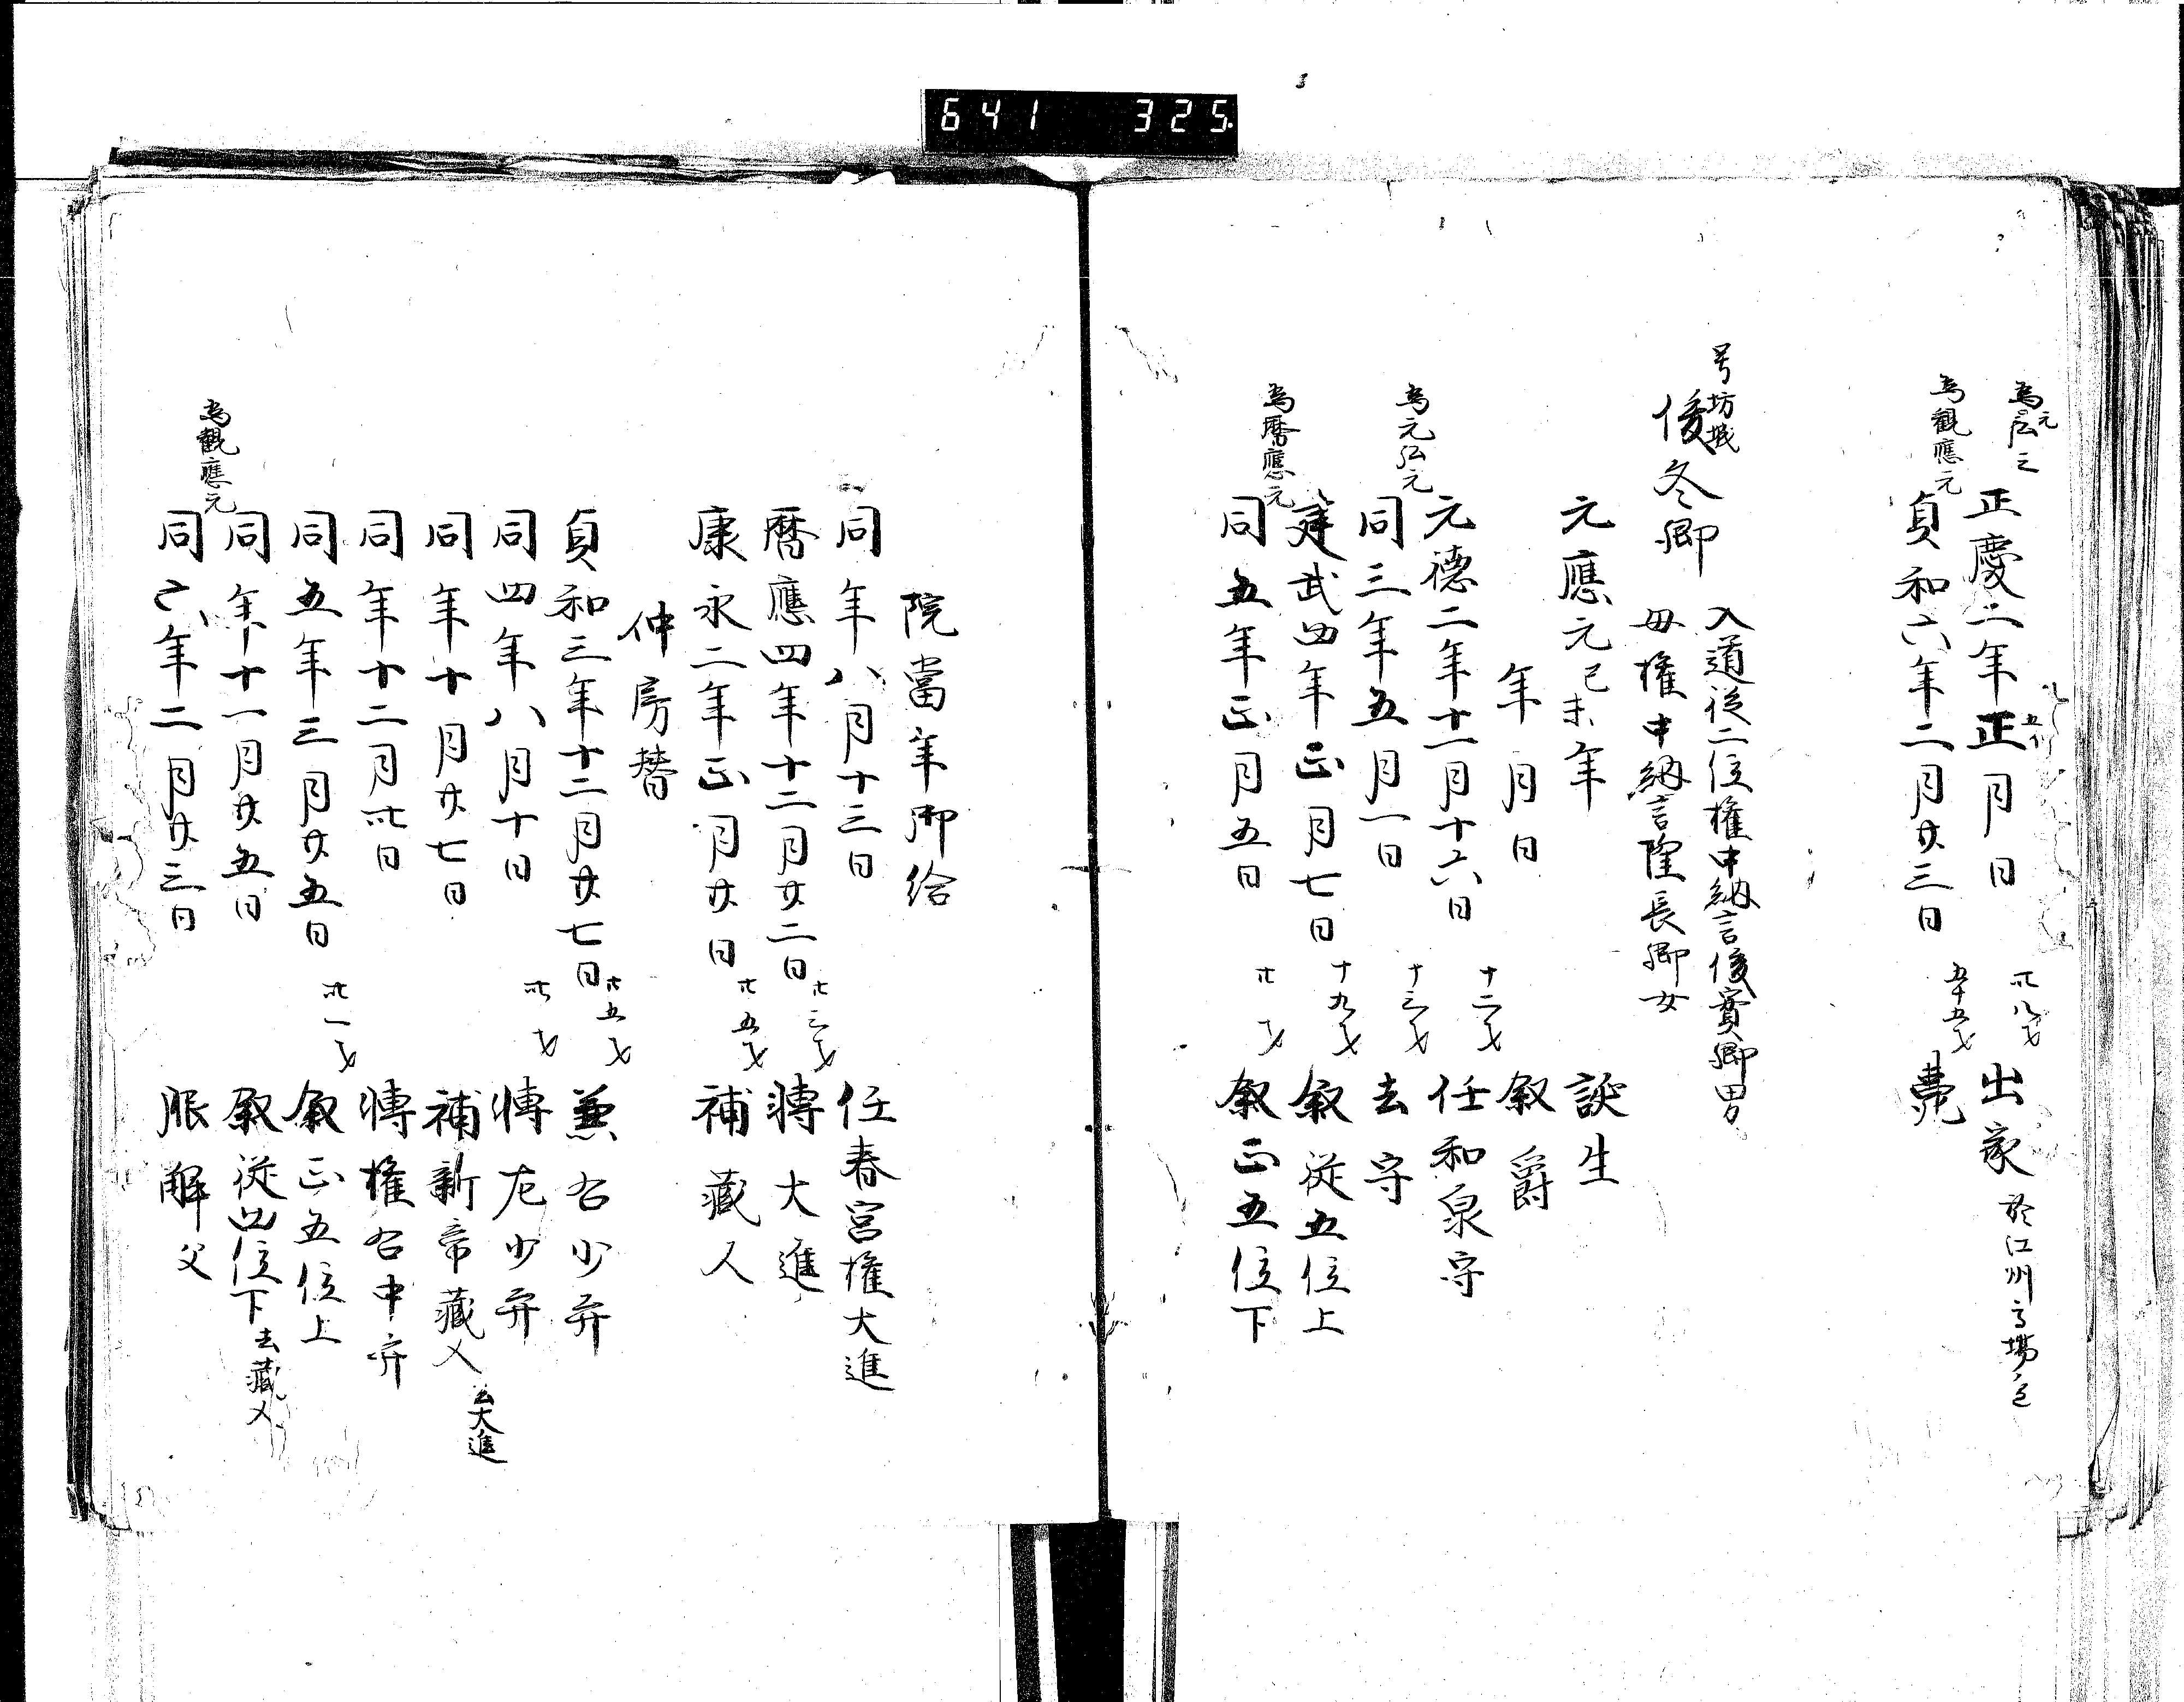 641 325
為元弘三
正慶二年正月日 卅八才 出家 於江州馬場邑
五イ
為觀應元
貞和六年二月廿三日 五十五才 薨
号坊城
俊冬卿 入道従二位權中納言俊實卿男
母權中納言隆長卿女
元應元己未年 誕生
年月日 叙爵
元德二年十一月十六日 十二才 任和泉守
為元弘元
同三年五月一日 十三才 去守
建武四年正月七日 十九才 叙従五位上
為曆應元
同五年正月五日 廿才 叙正五位下
院當年御給
同年八月十三日 任春宮權大進
曆應四年十二月廿二日 廿三才 轉大進
康永二年正月廿日 廿五才 補藏人
仲房替
貞和三年十二月廿七日 廿五才 兼右少弁
同四年八月十日 卅才 轉左少弁
同年十月廿七日 補新帝藏人 去大進
同年十二月卅日 轉權右中弁
同五年三月廿五日 卅一才 叙正五位上
同年十一月廿五日 叙従四位下 去藏人
為觀應元
同六年二月廿三日 服解父